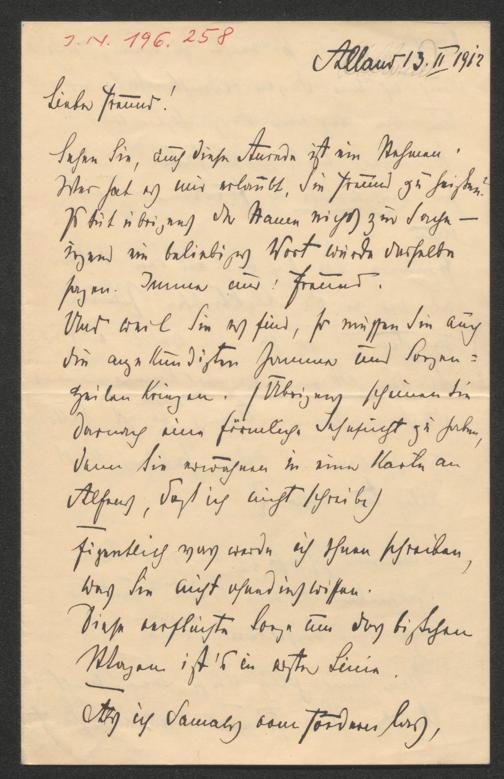 J. N. 196. 258
Alland 13. II 1912
Lieber Freund!
Sehen Sie, auch diese Anrede ist ein
Wer hat es mir erlaubt, Sie Freund zu heißen?
Es tut übrigens der Namen nichts zur Sache —
irgend ein beliebiges Wort würde dasselbe
sagen. Immer nur: Freund.
Und weil Sie es sind, so müssen Sie auch
die angekündigten Jammer und Sorgen=
zeilen kriegen. (Übrigens scheinen Sie
darnach eine förmliche Sehnsucht zu haben,
denn Sie erwähnen in einer Karte an
Alfons, daß ich nicht schreibe)
Eigentlich was werde ich Ihnen schreiben,
was Sie nicht ohnedies wissen.
Diese verfluchte Sorge um das bißchen
Magen ist's in erster Linie.
Als ich damals vom las,